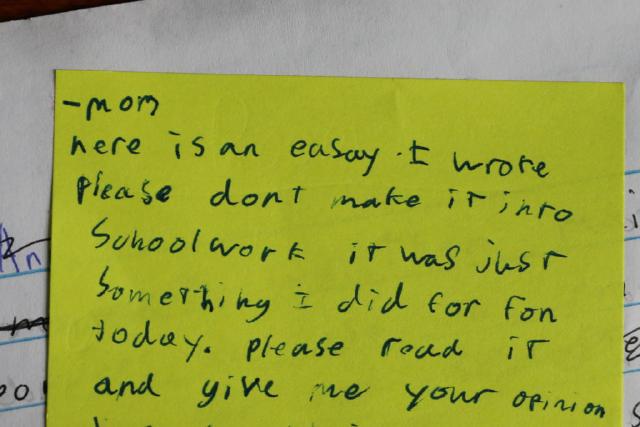 -mom
here is an easay I wrote
please dont make it into
schoolwork it was just
something i did for fon
today. please read it
and give me your opinion